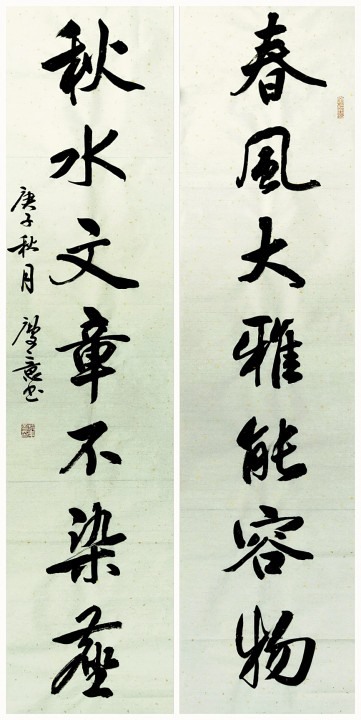 春風大雅能容物
秋水文章不染塵
庚子秋月
意书